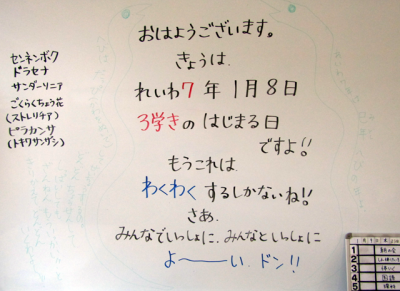 おはようございます。
きょうは、
れいわ7年1月8日
3学きのはじまる日
ですよ!!
もうこれは、
わくわくするしかないね!!
さあ、
みんなでいっしょに、みんなといっしょに
よ〜い、ドン!!
センネンボク
ドラセナ
サンダーリニア
ごくらくちょう花
(ストレリチア)
ピラカンサ
(トキワサンザシ)
1
2
3
4 国語
5